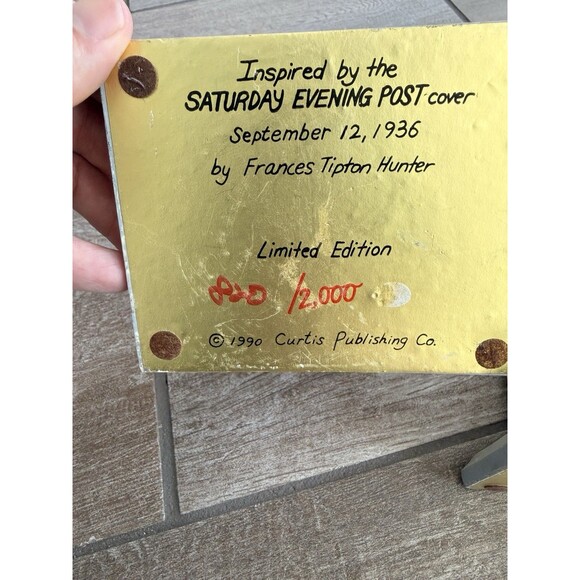 Inspired by the
SATURDAY EVENING POST cover
September 12, 1936
by Frances Tipton Hunter
Limited Edition
820 /2,000
© 1990 Curtis Publishing Co.